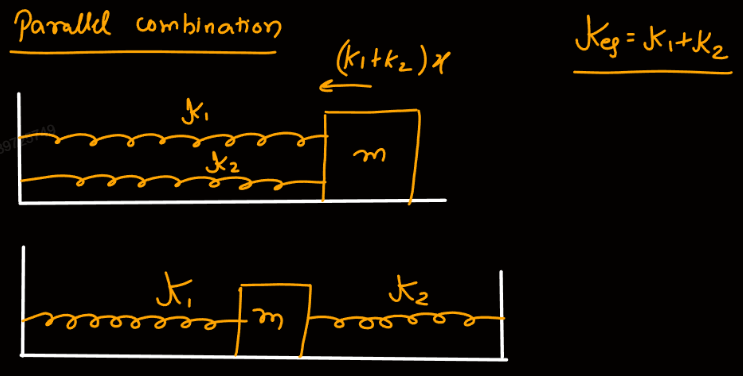 Parallel combination
Keq = K₁+K₂
(K₁+K₂)x
K₁
K₂
m
K₁
m
K₂